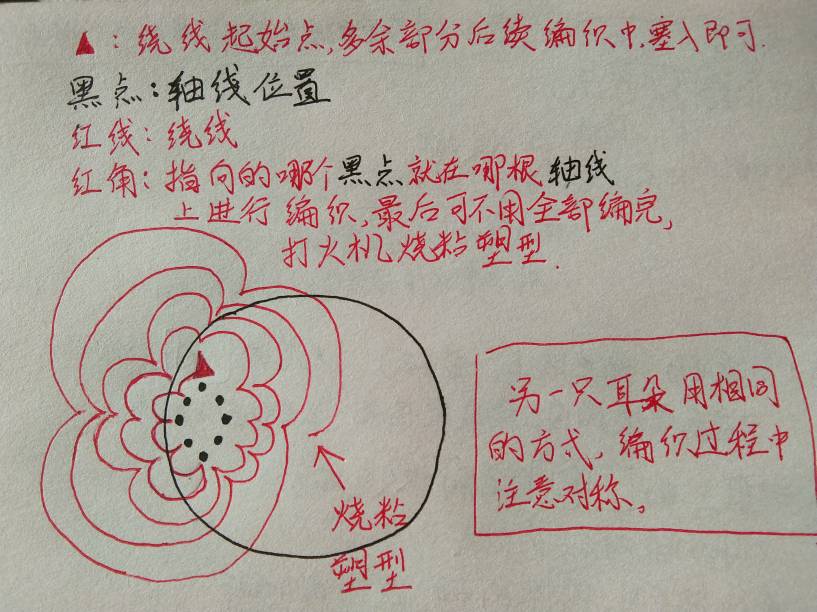 ▲：绕线起始点，多余部分后续编织中，塞入即可.
黑点：轴线位置
红线：绕线
红角：指向的哪个黑点就在哪根轴线
上进行编织，最后可不用全部编完，
打火机烧粘塑型.
另一只耳朵用相同
的方式，编织过程中
注意对称。
烧粘
塑型